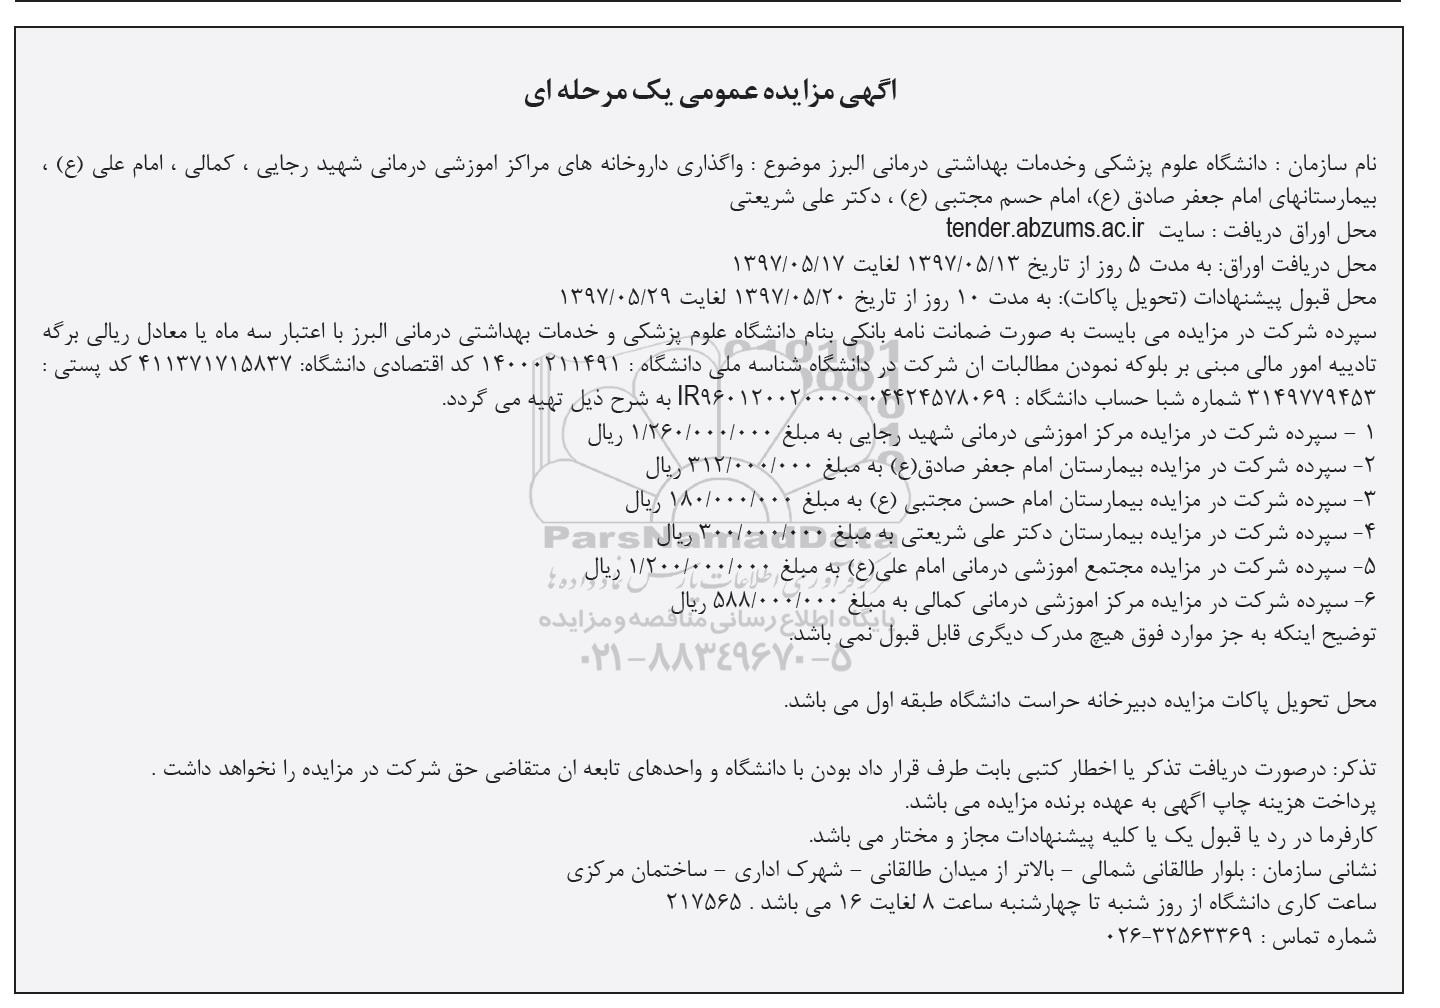 اگهی مزایده عمومی یک مرحله ای
نام سازمان : دانشگاه علوم پزشکی وخدمات بهداشتی درمانی البرز موضوع : واگذاری داروخانه های مراکز اموزشی درمانی شهید رجایی ، کمالی ، امام علی (ع) ،
بیمارستانهای امام جعفر صادق (ع)، امام حسم مجتبی (ع) ، دکتر علی شریعتی
محل اوراق دریافت : سایت tender.abzums.ac.ir
محل دریافت اوراق: به مدت ۵ روز از تاریخ ۱۳۹۷/۰۵/۱۳ لغایت ۱۳۹۷/۰۵/۱۷
محل قبول پیشنهادات (تحویل پاکات): به مدت ۱۰ روز از تاریخ ۱۳۹۷/۰۵/۲۰ لغایت ۱۳۹۷/۰۵/۲۹
سپرده شرکت در مزایده می بایست به صورت ضمانت نامه بانکی بنام دانشگاه علوم پزشکی و خدمات بهداشتی درمانی البرز با اعتبار سه ماه یا معادل ریالی برگه
تادییه امور مالی مبنی بر بلوکه نمودن مطالبات ان شرکت در دانشگاه شناسه ملی دانشگاه : ۱۴۰۰۰۲۱۱۴۹۱ کد اقتصادی دانشگاه: ۴۱۱۳۷۱۷۱۵۸۳۷ کد پستی :
۳۱۴۹۷۷۹۴۵۳ شماره شبا حساب دانشگاه : IR۹۶۰۱۲۰۰۲۰۰۰۰۰۰۴۴۲۴۵۷۸۰۶۹ به شرح ذیل تهیه می گردد.
۱ – سپرده شرکت در مزایده مرکز اموزشی درمانی شهید رجایی به مبلغ ۱/۲۶۰/۰۰۰/۰۰۰ ریال
۲- سپرده شرکت در مزایده بیمارستان امام جعفر صادق(ع) به مبلغ ۳۱۲/۰۰۰/۰۰۰ ریال
۳- سپرده شرکت در مزایده بیمارستان امام حسن مجتبی (ع) به مبلغ ۱۸۰/۰۰۰/۰۰۰ ریال
۴- سپرده شرکت در مزایده بیمارستان دکتر علی شریعتی به مبلغ ۳۰۰/۰۰۰/۰۰۰ ریال
ParsNamadData
۵- سپرده شرکت در مزایده مجتمع اموزشی درمانی امام علی(ع) به مبلغ ۱/۲۰۰/۰۰۰/۰۰۰ ریال
مرکز فرآوری اطلاعات پارس نماد داده ها
۶- سپرده شرکت در مزایده مرکز اموزشی درمانی کمالی به مبلغ ۵۸۸/۰۰۰/۰۰۰ ریال
پایگاه اطلاع رسانی مناقصه و مزایده
توضیح اینکه به جز موارد فوق هیچ مدرک دیگری قابل قبول نمی باشد.
۰۲۱-۸۸۳۴۹۶۷۰-۵
محل تحویل پاکات مزایده دبیرخانه حراست دانشگاه طبقه اول می باشد.
تذکر: درصورت دریافت تذکر یا اخطار کتبی بابت طرف قرار داد بودن با دانشگاه و واحدهای تابعه ان متقاضی حق شرکت در مزایده را نخواهد داشت .
پرداخت هزینه چاپ اگهی به عهده برنده مزایده می باشد.
کارفرما در رد یا قبول یک یا کلیه پیشنهادات مجاز و مختار می باشد.
نشانی سازمان : بلوار طالقانی شمالی – بالاتر از میدان طالقانی – شهرک اداری – ساختمان مرکزی
ساعت کاری دانشگاه از روز شنبه تا چهارشنبه ساعت ۸ لغایت ۱۶ می باشد . ۲۱۷۵۶۵
شماره تماس : ۳۲۵۶۳۳۶۹-۰۲۶